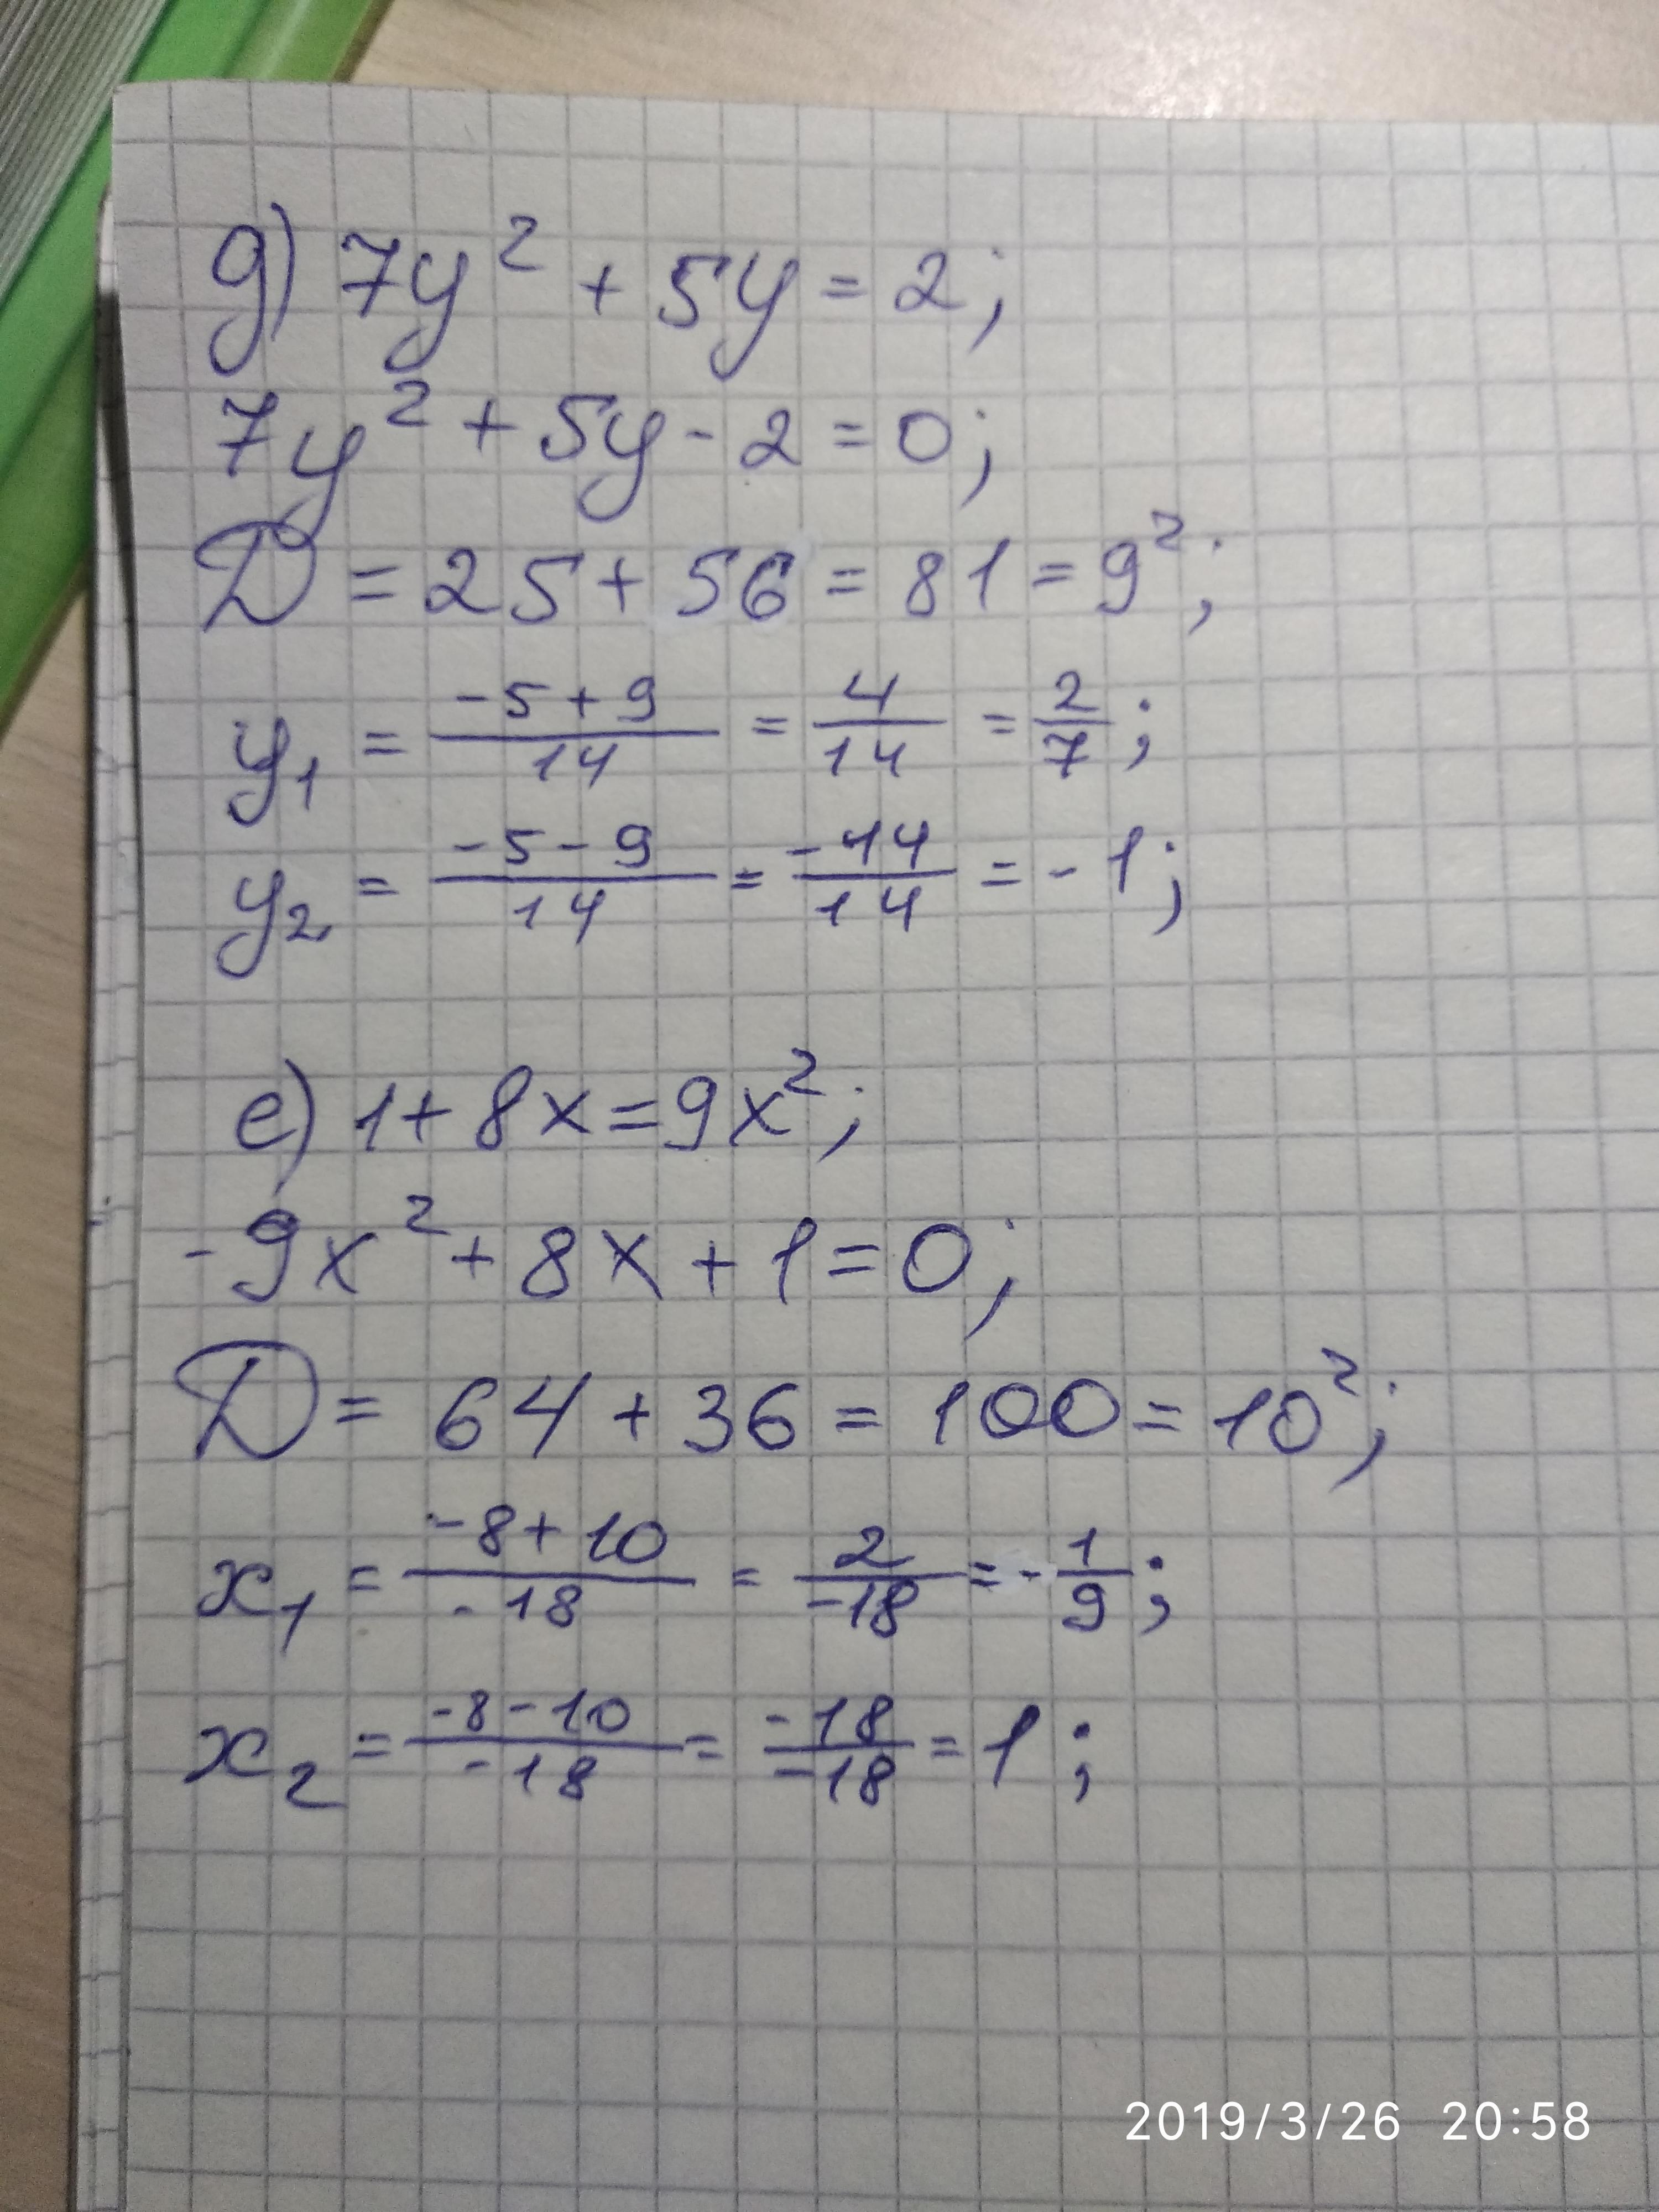 д) 7y² + 5y = 2;
7y² + 5y - 2 = 0;
D = 25 + 56 = 81 = 9²;
y₁ = (-5 + 9)/14 = 4/14 = 2/7;
y₂ = (-5 - 9)/14 = -14/14 = -1;
е) 1 + 8x = 9x²;
-9x² + 8x + 1 = 0;
D = 64 + 36 = 100 = 10²;
x₁ = (-8 + 10)/-18 = 2/-18 = -1/9;
x₂ = (-8 - 10)/-18 = -18/-18 = 1;
2019/3/26 20:58